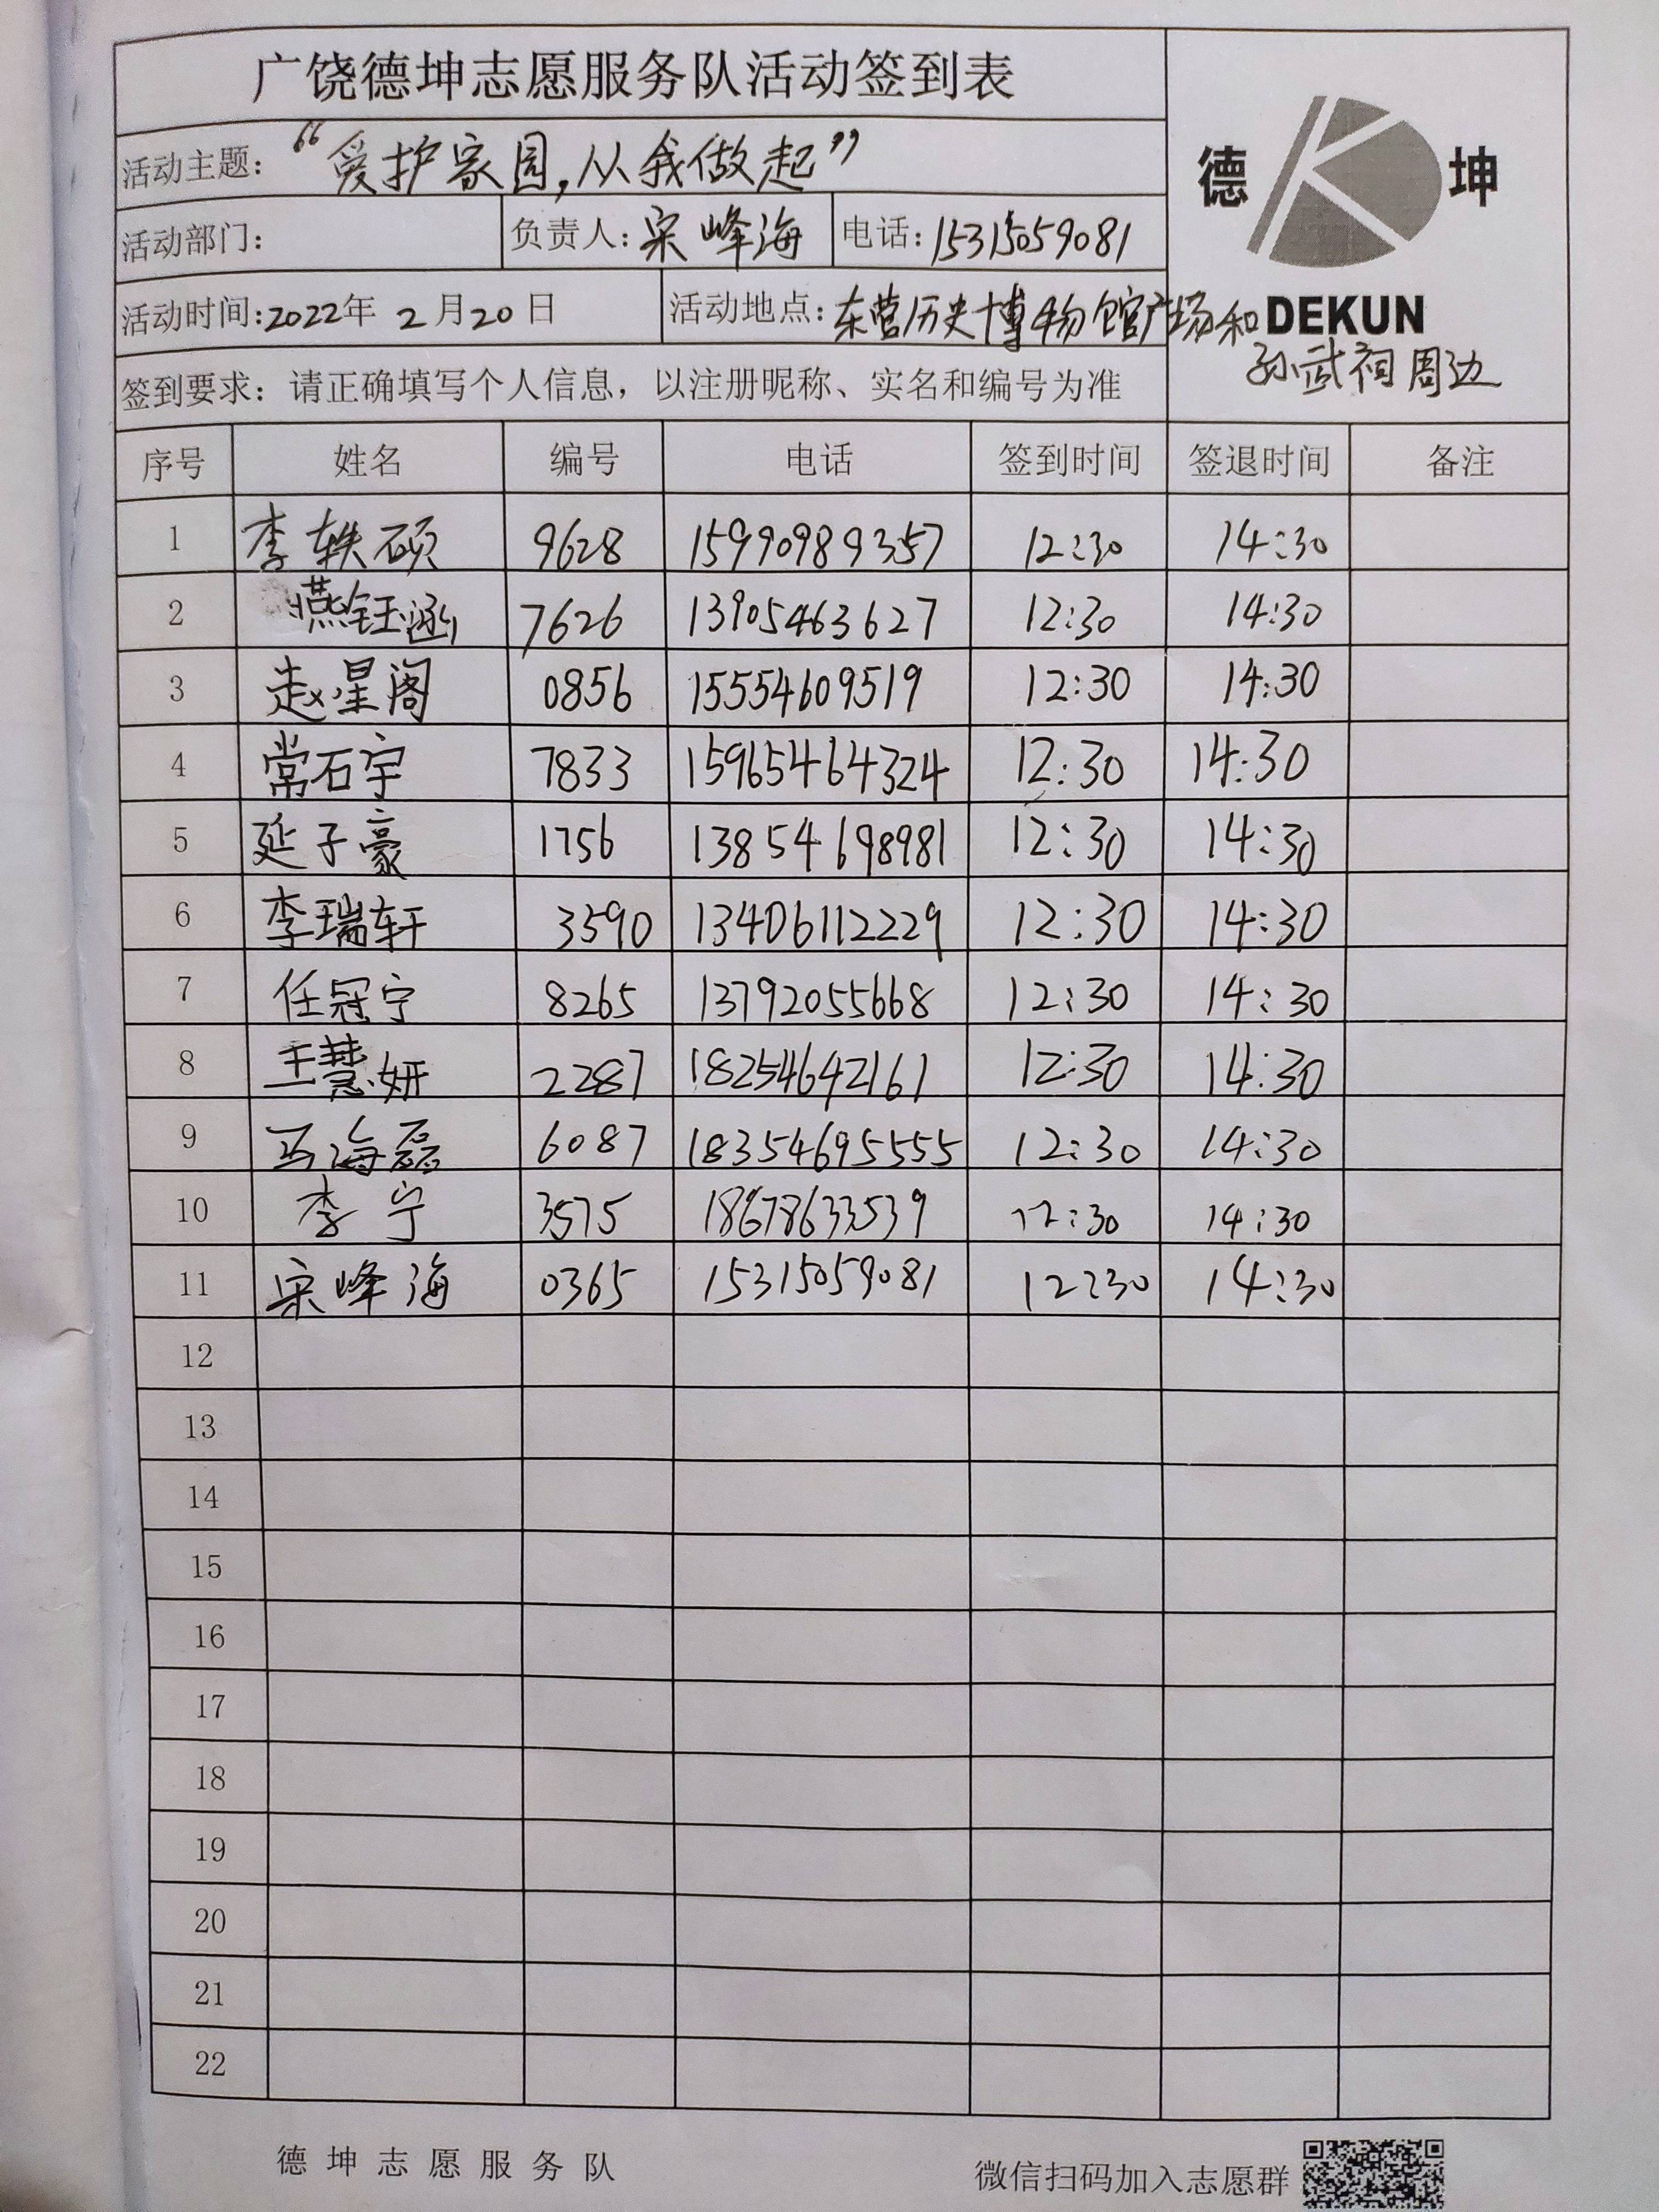 广饶德坤志愿服务队活动签到表
德 坤
活动主题: “爱护家园,从我做起”
活动部门: 负责人: 宋峰海 电话: 15315059081
活动时间: 2022年 2 月 20 日 活动地点: 东营历史博物馆广场和
DEKUN
孙武祠周边
签到要求: 请正确填写个人信息, 以注册昵称、实名和编号为准
序号 姓名 编号 电话 签到时间 签退时间 备注
1 李轶硕 9628 15990989357 12:30 14:30
2 燕钰涵 7626 13905463627 12:30 14:30
3 赵星阁 0856 15554609519 12:30 14:30
4 常石宇 7833 15965464324 12:30 14:30
5 延子豪 1756 13854698981 12:30 14:30
6 李瑞轩 3590 13406112229 12:30 14:30
7 任冠宁 8265 13792055668 12:30 14:30
8 王慧妍 2287 18254642161 12:30 14:30
9 海磊 6087 18354695555 12:30 14:30
10 李宁 3575 18678633539 12:30 14:30
11 宋峰海 0365 15315059081 12:30 14:30
12
13
14
15
16
17
18
19
20
21
22
德坤志愿服务队
微信扫码加入志愿群